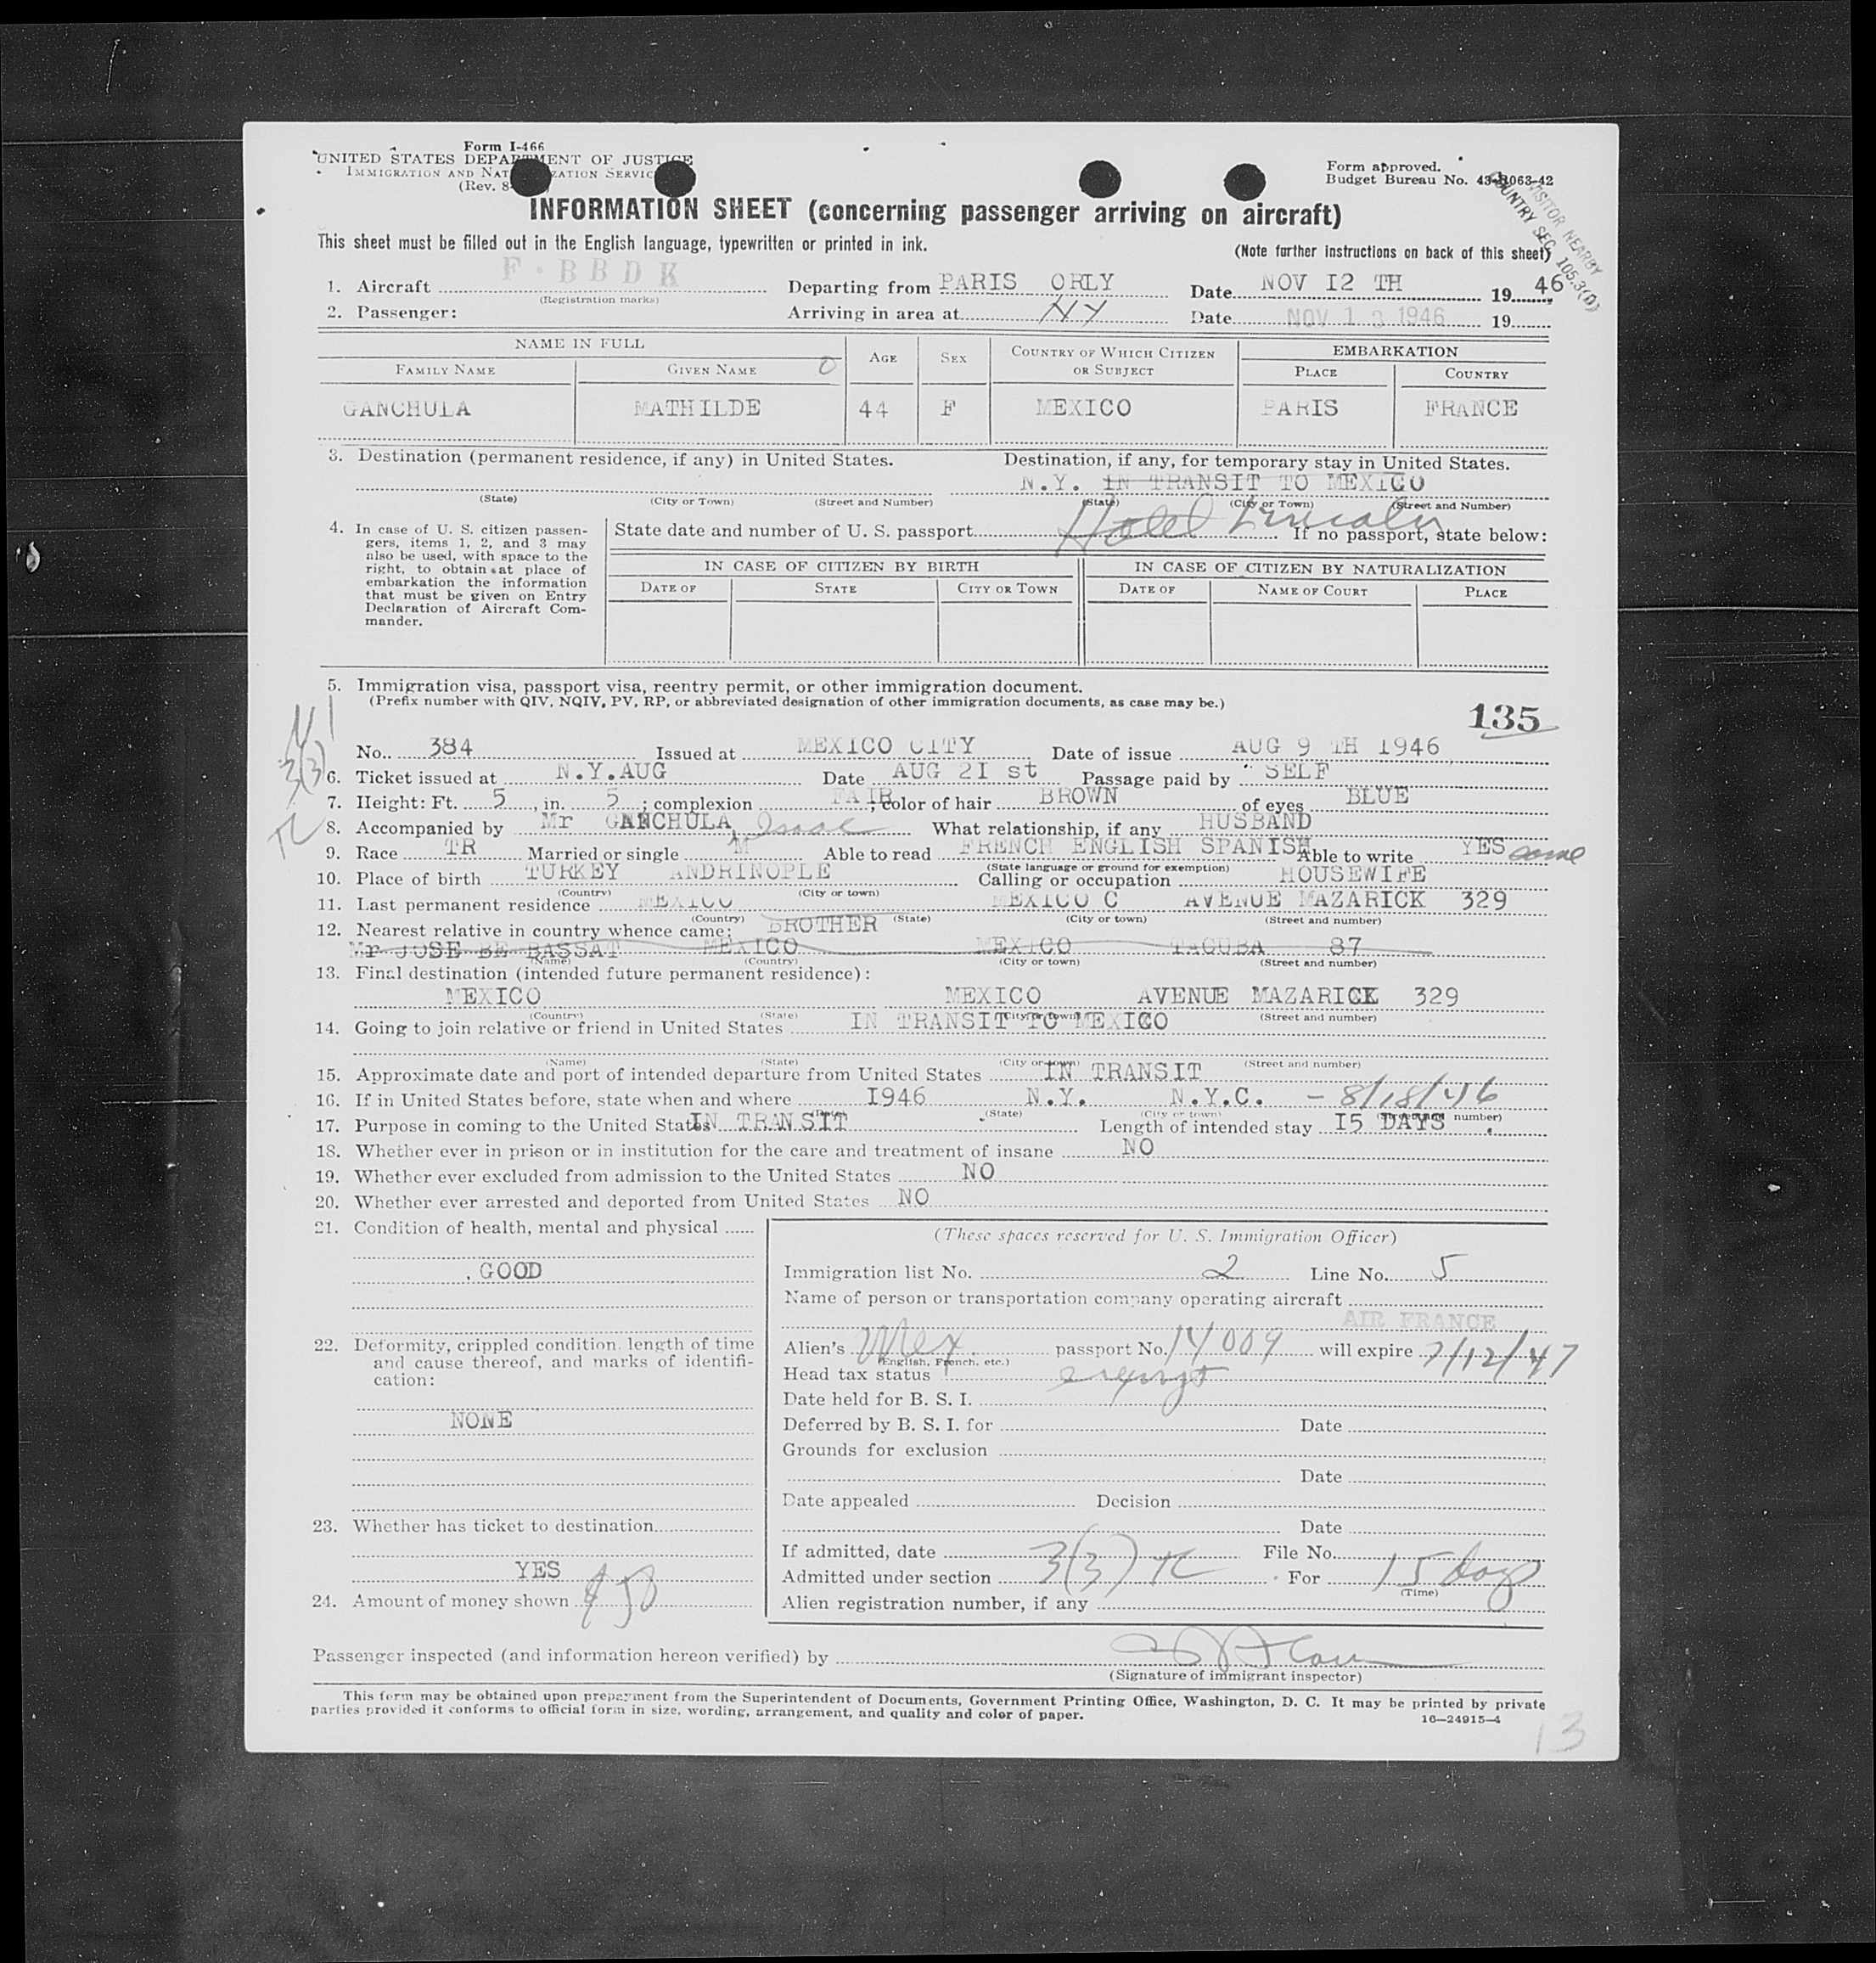 Form I-466
UNITED STATES DEPARTMENT OF JUSTICE
IMMIGRATION AND NATURALIZATION SERVICE
(Rev. 8-
Form approved.
Budget Bureau No. 43-R063-42
VISITOR NEARBY
COUNTRY SEC 105.3(D)
INFORMATION SHEET (concerning passenger arriving on aircraft)
This sheet must be filled out in the English language, typewritten or printed in ink.
(Note further instructions on back of this sheet)
1. Aircraft F·BBDK Departing from PARIS ORLY Date NOV I2 TH 1946
(Registration marks)
2. Passenger: Arriving in area at NY Date NOV 13 1946 19
NAME IN FULL AGE SEX COUNTRY OF WHICH CITIZEN OR SUBJECT EMBARKATION
FAMILY NAME GIVEN NAME 0 PLACE COUNTRY
GANCHULA MATHILDE 44 F MEXICO PARIS FRANCE
3. Destination (permanent residence, if any) in United States. Destination, if any, for temporary stay in United States.
N.Y. IN TRANSIT TO MEXICO
(State) (City or Town) (Street and Number) (State) (City or Town) (Street and Number)
Hotel Lincoln
4. In case of U. S. citizen passengers, items 1, 2, and 3 may also be used, with space to the right, to obtain at place of embarkation the information that must be given on Entry Declaration of Aircraft Commander.
State date and number of U. S. passport If no passport, state below:
IN CASE OF CITIZEN BY BIRTH IN CASE OF CITIZEN BY NATURALIZATION
DATE OF STATE CITY OR TOWN DATE OF NAME OF COURT PLACE
5. Immigration visa, passport visa, reentry permit, or other immigration document.
(Prefix number with QIV, NQIV, PV, RP, or abbreviated designation of other immigration documents, as case may be.)
135
3(3)
No. 384 Issued at MEXICO CITY Date of issue AUG 9 TH 1946
6. Ticket issued at N.Y.AUG Date AUG 2I st Passage paid by SELF
7. Height: Ft. 5, in. 5; complexion FAIR; color of hair BROWN of eyes BLUE
8. Accompanied by Mr GANCHULA, Isaac What relationship, if any HUSBAND
9. Race TR Married or single M Able to read FRENCH ENGLISH SPANISH Able to write YES same
(State language or ground for exemption)
10. Place of birth TURKEY ANDRINOPLE Calling or occupation HOUSEWIFE
(Country) (City or town)
11. Last permanent residence MEXICO MEXICO C AVENUE MAZARICK 329
(Country) (State) (City or town) (Street and number)
12. Nearest relative in country whence came: BROTHER
Mr JOSE BE BASSAT MEXICO MEXICO TACUBA 87
(Name) (Country) (City or town) (Street and number)
13. Final destination (intended future permanent residence):
MEXICO MEXICO AVENUE MAZARICK 329
(Country) (State) (City or town) (Street and number)
14. Going to join relative or friend in United States IN TRANSIT TO MEXICO
(Name) (State) (City or town) (Street and number)
15. Approximate date and port of intended departure from United States IN TRANSIT
16. If in United States before, state when and where I946 N.Y. N.Y.C. - 8/18/46
(State) (City or town) (Street and number)
17. Purpose in coming to the United States IN TRANSIT Length of intended stay I5 DAYS.
18. Whether ever in prison or in institution for the care and treatment of insane NO
19. Whether ever excluded from admission to the United States NO
20. Whether ever arrested and deported from United States NO
21. Condition of health, mental and physical
GOOD
22. Deformity, crippled condition, length of time and cause thereof, and marks of identification:
NONE
23. Whether has ticket to destination
YES
24. Amount of money shown $50
(These spaces reserved for U. S. Immigration Officer)
Immigration list No. 2 Line No. 5
Name of person or transportation company operating aircraft
AIR FRANCE
Alien's Mex. passport No. 14009 will expire 7/12/47
(English, French, etc.)
Head tax status exempt
Date held for B. S. I.
Deferred by B. S. I. for Date
Grounds for exclusion
Date
Date appealed Decision
Date
If admitted, date File No.
Admitted under section 3(3) TC For 15 days
(Time)
Alien registration number, if any
Passenger inspected (and information hereon verified) by
(Signature of immigrant inspector)
This form may be obtained upon prepayment from the Superintendent of Documents, Government Printing Office, Washington, D. C. It may be printed by private
parties provided it conforms to official form in size, wording, arrangement, and quality and color of paper.
16—24915-4
13